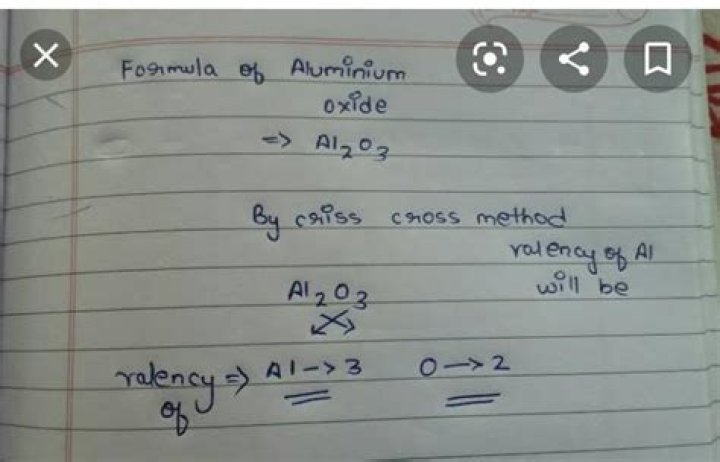 Formula of Aluminium
oxide
=> Al₂O₃
By criss cross method
valency of Al
will be
Al₂O₃
valency of => Al -> 3 O -> 2